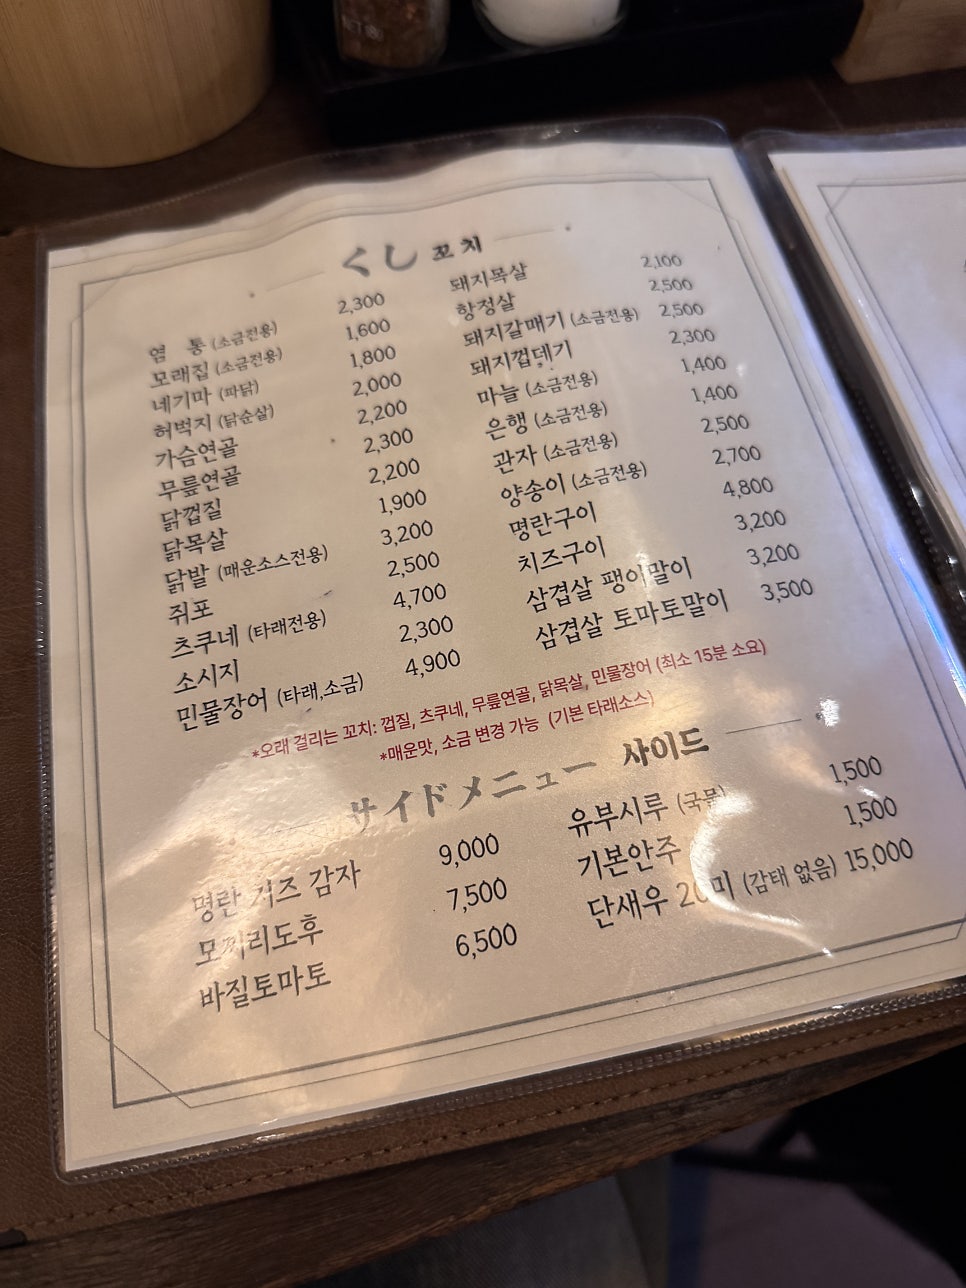 くし 꼬치
염 통 (소금전용) 2,300
모래집 (소금전용) 1,600
네기마 (파닭) 1,800
허벅지 (닭순살) 2,000
가슴연골 2,200
무릎연골 2,300
닭껍질 2,200
닭목살 1,900
닭발 (매운소스전용) 3,200
쥐포 2,500
츠쿠네 (타래전용) 4,700
소시지 2,300
민물장어 (타래,소금) 4,900
돼지목살 2,100
항정살 2,500
돼지갈매기 (소금전용) 2,500
돼지껍데기 2,300
마늘 (소금전용) 1,400
은행 (소금전용) 1,400
관자 (소금전용) 2,500
양송이 (소금전용) 2,700
명란구이 4,800
치즈구이 3,200
삼겹살 팽이말이 3,200
삼겹살 토마토말이 3,500
*오래 걸리는 꼬치: 껍질, 츠쿠네, 무릎연골, 닭목살, 민물장어 (최소 15분 소요)
*매운맛, 소금 변경 가능 (기본 타래소스)
サイドメニュー 사이드
명란 치즈 감자 9,000
모찌리도후 7,500
바질토마토 6,500
유부시루 (국물) 1,500
기본안주 1,500
단새우 20미 (감태 없음) 15,000